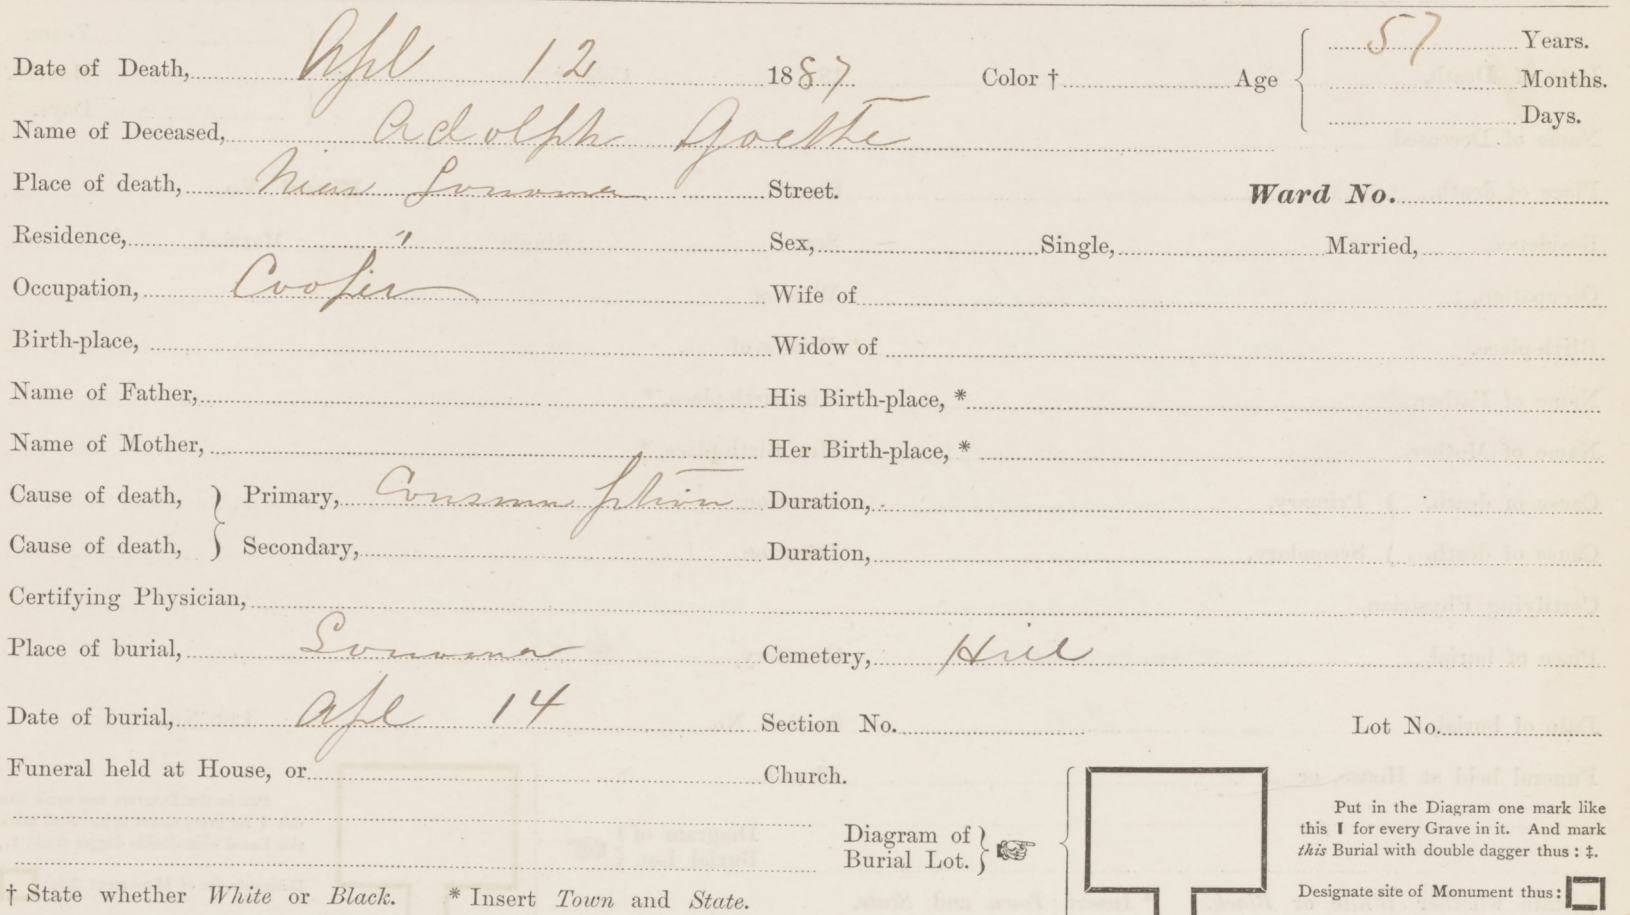 Date of Death, Apl 12 1887 Color † Age 57 Years.
Months.
Days.
Name of Deceased, Adolph Goethe
Place of death, Near Sonoma Street. Ward No.
Residence, " Sex, Single, Married,
Occupation, Cooper Wife of
Birth-place, Widow of
Name of Father, His Birth-place, *
Name of Mother, Her Birth-place, *
Cause of death, } Primary, Consumption Duration,
Cause of death, } Secondary, Duration,
Certifying Physician,
Place of burial, Sonoma Cemetery, Hill
Date of burial, Apl 14 Section No. Lot No.
Funeral held at House, or Church.
Diagram of
Burial Lot.
Put in the Diagram one mark like
this I for every Grave in it. And mark
this Burial with double dagger thus : ‡.
Designate site of Monument thus :
† State whether White or Black. * Insert Town and State.